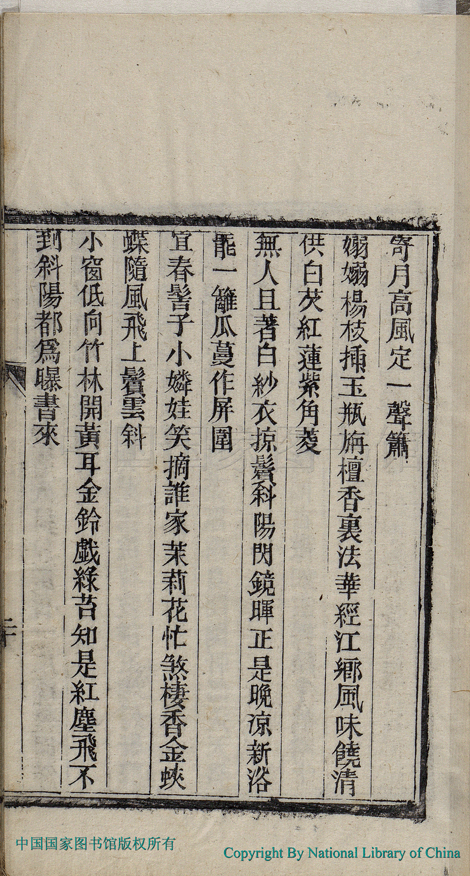 寄月高風定一聲簫
嫋嫋楊枝揷玉瓶旃檀香裏法華經江鄉風味饒清
供白芡紅蓮紫角菱
無人且著白紗衣掠鬢斜陽閃鏡暉正是晚凉新浴
罷一籬瓜蔓作屏圍
宜春髻子小嬌娃笑摘誰家茉莉花忙煞棲香金蛺
蝶隨風飛上鬢雲斜
小窗低向竹林開黃耳金鈴戲綠苔知是紅塵飛不
到斜陽都爲曝書來
二
中国国家图书馆版权所有
Copyright By National Library of China